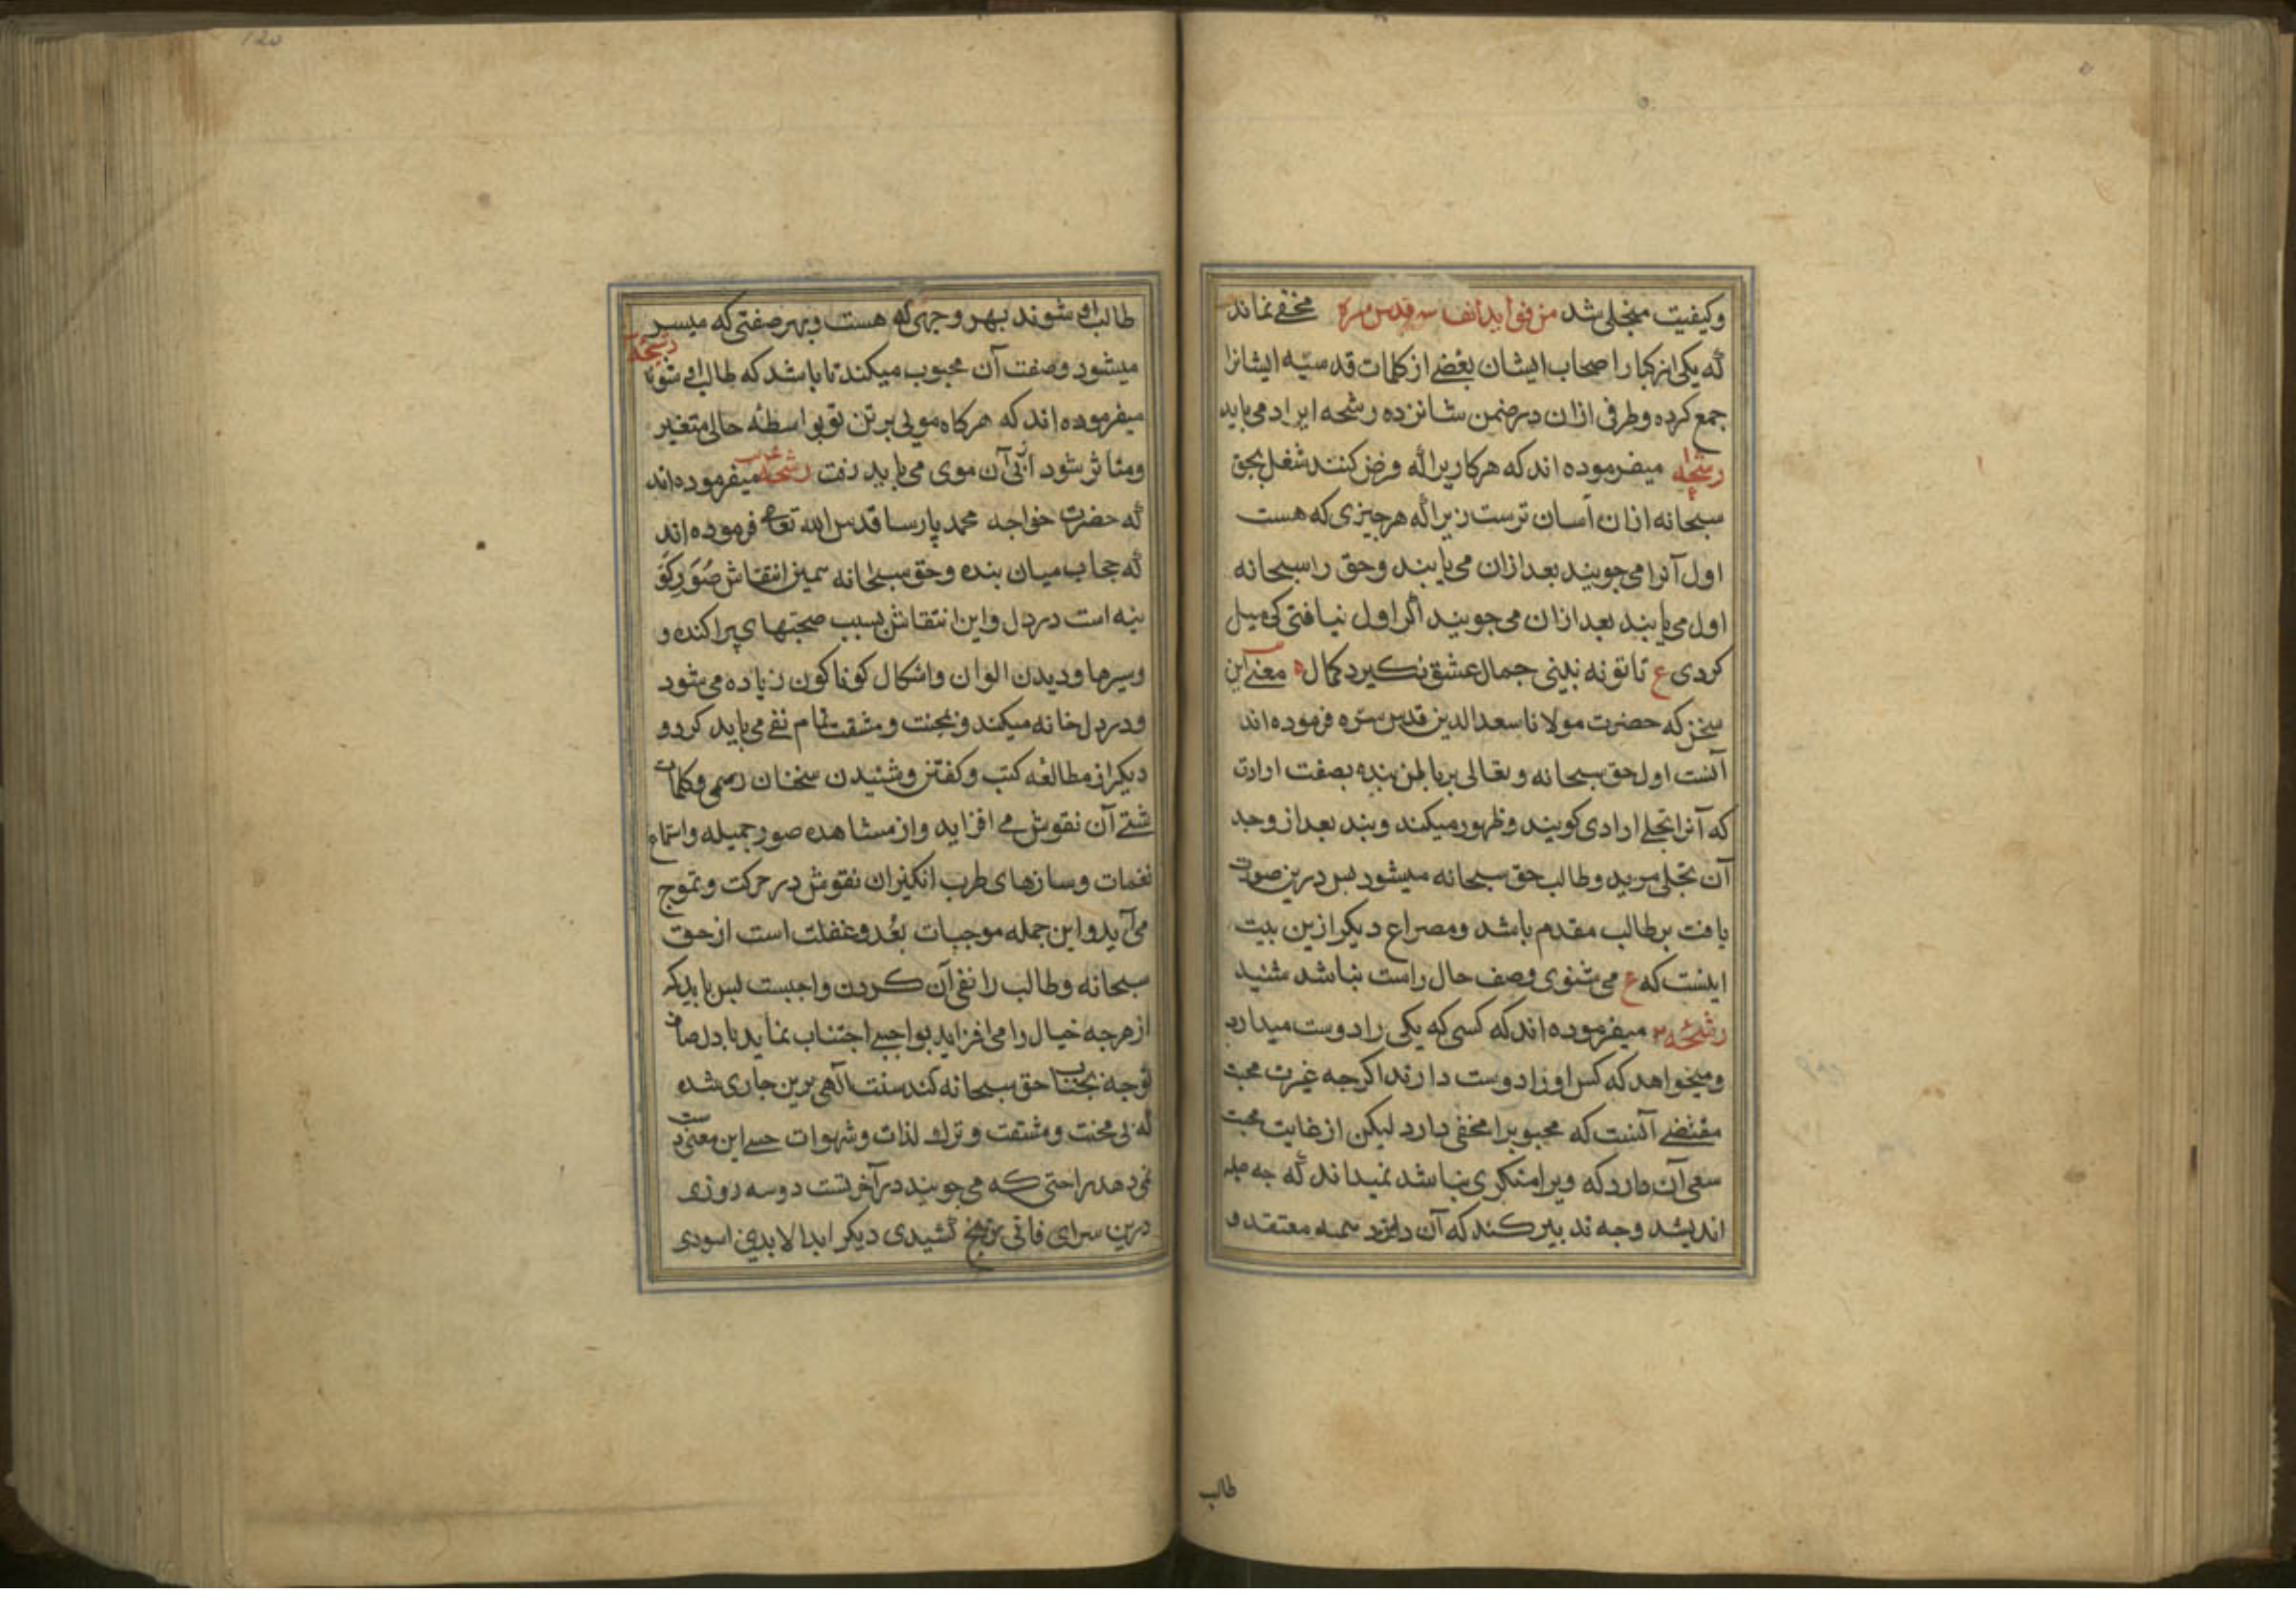 وکیفیت منجلی شد من فواید انفاسه قدس سره مخفی نماند
که یکی از کبار اصحاب ایشان بعضی از کلمات قدسیّه ایشانرا
جمع کرده و طرفی ازان درضمن شانزده رشحه ایراد می یابد
رشحه میفرموده اند که هرکاریرا که فرض کنند شغل بحق
سبحانه ازان آسان ترست زیرا که هرچیزی که هست
اول آنرا می جویند بعدازان می یابند وحق راسبحانه
اول می یابند بعدازان می جویند اگر اول نیافتی کی میل
کردی ع تا تو نه بینی جمال عشق نکیرد کمال معنی این
سخن که حضرت مولانا سعدالدین قدس سره فرموده اند
آنست اول حق سبحانه وتعالی برباطن بنده بصفت ارادت
که آنرا تجلی ارادی کویند وظهور میکند وبنده بعداز وجد
آن تجلی مرید وطالب حق سبحانه میشود پس درین صورت
یافت برطالب مقدم باشد ومصراع دیکر ازین بیت
اینست که ع می شنوی وصف حال راست نباشد شنید
رشحه ۲ میفرموده اند که کسی که یکی را دوست میدارد
ومیخواهد که کس اورا دوست دارند اکرچه غیرت محبت
مقتضی آنست که محبوبرا مخفی دارد لیکن از غایت محبت
سعی آن دارد که ویرا منکری نباشد نمیداند که چه حیله
اندیشد وچه تدبیر کند که آن دلبرد همه معتقد و
طالب
طالب او شوند بهر وجهی که هست وبهر صفتی که میسر
میشود وصفت آن محبوب میکند تا باشد که طالب او شوند رشحه
میفرموده اند که هرکاه مویی برتن تو بواسطه حالی متغیر
ومتاثر شود ازپی آن موی می باید رفت رشحه میفرموده اند
که حضرت خواجه محمد پارسا قدس الله تعالی فرموده اند
که حجاب میان بنده وحق سبحانه همین انتقاش صُوَر کَو
نیه است در دل واین انتقاش بسبب صحبتهای پراکنده و
وسیرها ودیدن الوان واشکال کوناکون زیاده می شود
ودردل خانه میکند وبمحنت ومشقت تمام نفی می باید کرد و
دیکر از مطالعه کتب وکفتن وشنیدن سخنان رسمی وکلمات
شتی آن نقوش می افزاید واز مشاهده صور جمیله واستماع
نغمات وسازهای طرب انکیز ان نقوش درحرکت وتموج
می آید واین جمله موجبات بُعد وغفلت است از حق
سبحانه وطالب را نفی آن کردن واجبست پس باید که
از هرچه خیال را می افزاید بواجبی اجتناب نماید تا بدل صاف
توجه بجناب حق سبحانه کند سنت الهی برین جاری شده
که بی محنت ومشقت وترک لذات وشهوات حسی این معنی دست
نمی دهد راحتی که می جویند در آخرتست دوسه روزی
درین سرای فانی رنج کشیدی دیکر ابدا لابدین اسودی